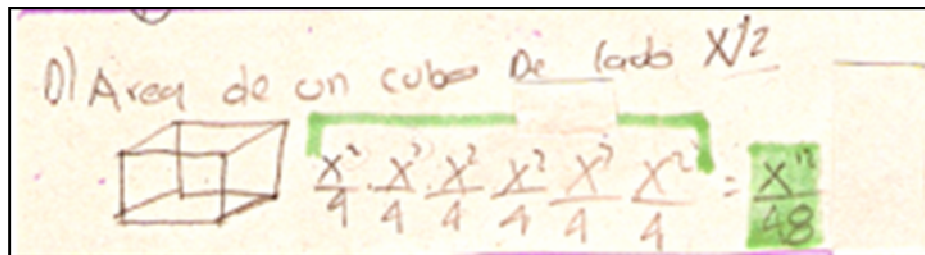 D) Area de un cubo De lado X/2
X²/4 · X²/4 · X²/4 X²/4 X²/4 X²/4 = X¹²/48